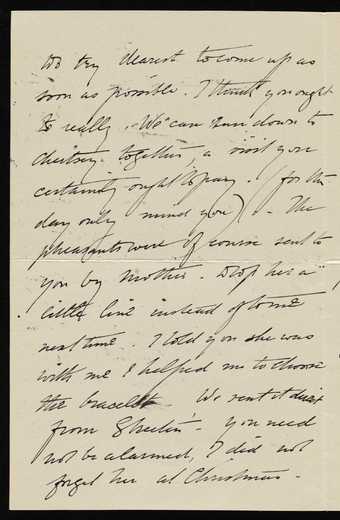 to try dearest to come up as
soon as possible. I think you ought
to really. We can run down to
together, a visit you
certainly ought to pay. (for the
day only mind you). - The
pheasants were of course sent to
you by mother. Drop her a
little line instead of to me
next time. I told you she was
with me & helped me to choose
the bracelet. We sent it direct
from Streeter's. You need
not be alarmed, I did not
forget her at Christmas -